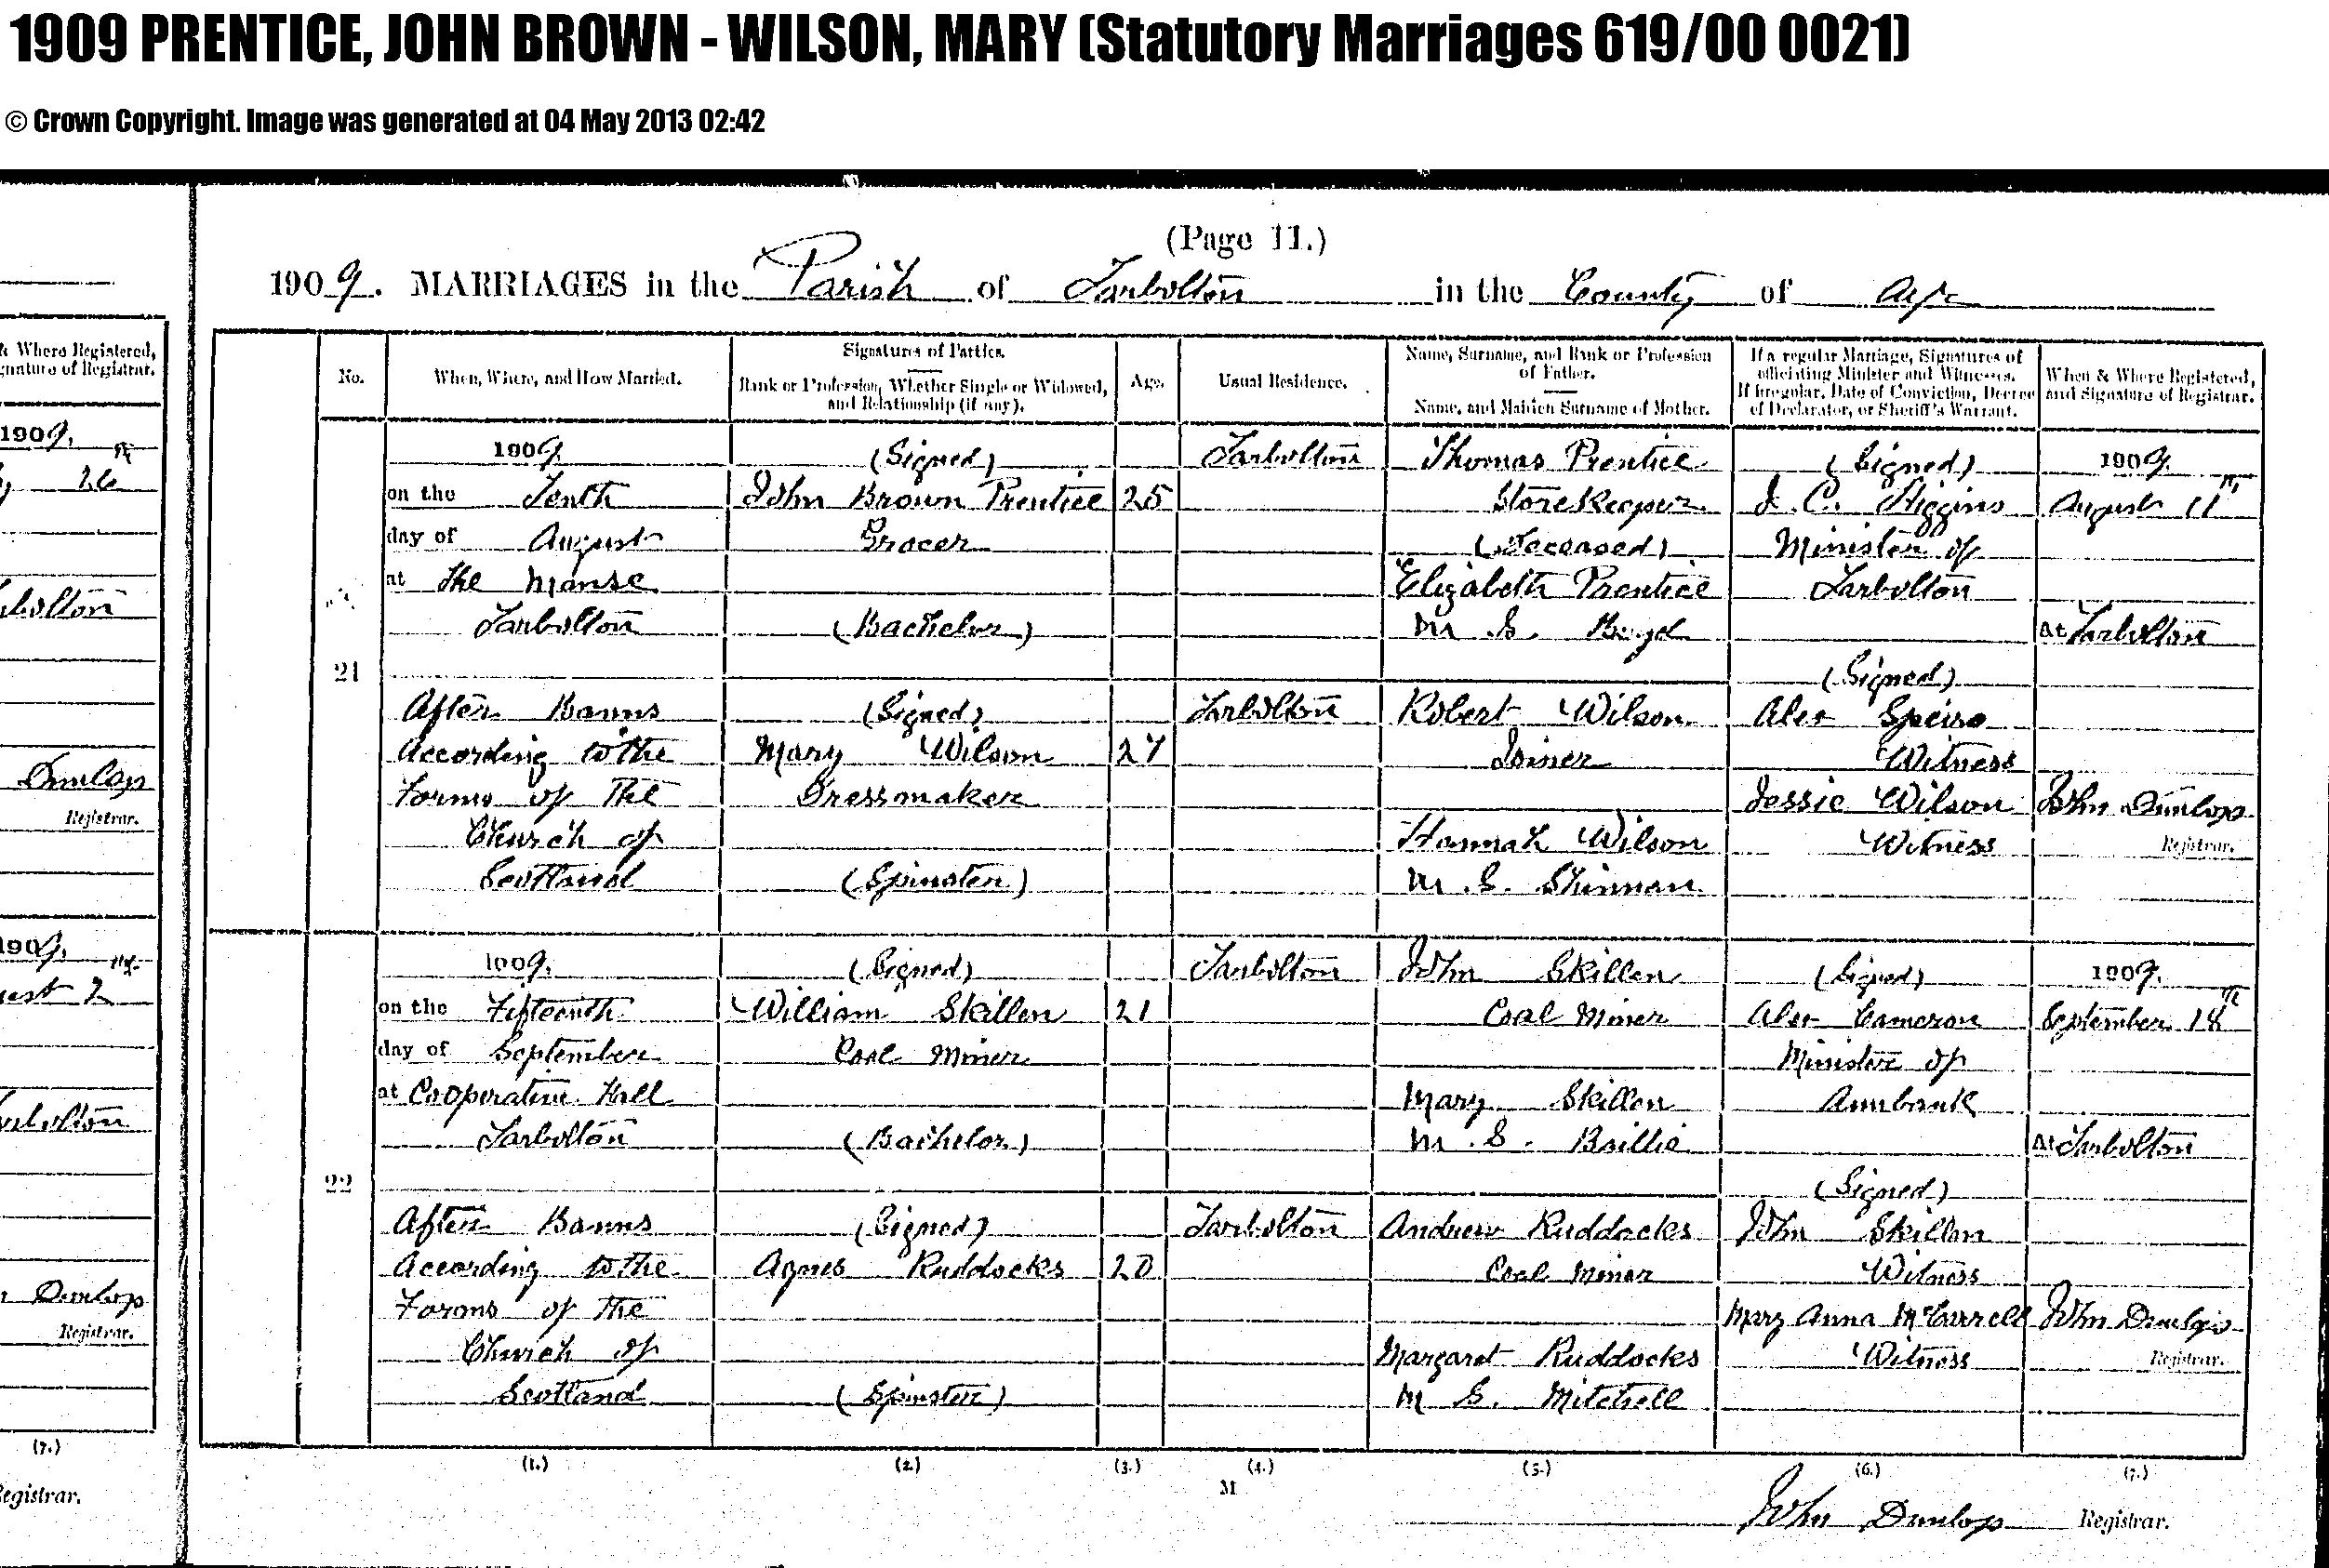 1909 PRENTICE, JOHN BROWN - WILSON, MARY (Statutory Marriages 619/00 0021)
© Crown Copyright. Image was generated at 04 May 2013 02:42
(Page 11.)
1909. MARRIAGES in the Parish of Tarbolton in the County of Ayr
& Where Registered,
gnature of Registrar.
1909.
26
rbolton
Dunlop
Registrar.
1909.
ust 2
rbolton
n Dunlop
Registrar.
(7.)
Registrar.
No.
When, Where, and How Married.
Signatures of Parties.
Rank or Profession, Whether Single or Widowed,
and Relationship (if any).
Age.
Usual Residence.
Name, Surname, and Rank or Profession
of Father.
Name, and Maiden Surname of Mother.
If a regular Marriage, Signatures of
officiating Minister and Witnesses.
If irregular, Date of Conviction, Decree
of Declarator, or Sheriff's Warrant.
When & Where Registered,
and Signature of Registrar.
21
1909.
on the Tenth
day of August
at The Manse
Tarbolton
After Banns
According to the
Forms of The
Church of
Scotland
(Signed)
John Brown Prentice
Grocer
(Bachelor)
(Signed)
Mary Wilson
Dressmaker
(Spinster)
25
27
Tarbolton
Tarbolton
Thomas Prentice
Storekeeper
(Deceased)
Elizabeth Prentice
M.S. Boyd
Robert Wilson
Joiner
Hannah Wilson
M.S. Shinnan
(Signed)
J. C. Higgins
Minister of
Tarbolton
(Signed)
Alex Speirs
Witness
Jessie Wilson
Witness
1909.
August 11th
At Tarbolton
John Dunlop
Registrar.
22
1909.
on the Fifteenth
day of September
at Cooperative Hall
Tarbolton
After Banns
According to the
Forms of the
Church of
Scotland
(Signed)
William Skillen
Coal Miner
(Bachelor)
(Signed)
Agnes Ruddocks
(Spinster)
21
20
Tarbolton
Tarbolton
John Skillen
Coal Miner
Mary Skillen
M.S. Baillie
Andrew Ruddocks
Coal Miner
Margaret Ruddocks
M S. Mitchell
(Signed)
Alex Cameron
Minister of
Annbank
(Signed)
John Skillen
Witness
Mary Anna McCarrell
Witness
1909.
September 18th
At Tarbolton
John Dunlop
Registrar.
(1.) (2.) (3.) (4.) (5.) (6.) (7.)
M
John Dunlop Registrar.